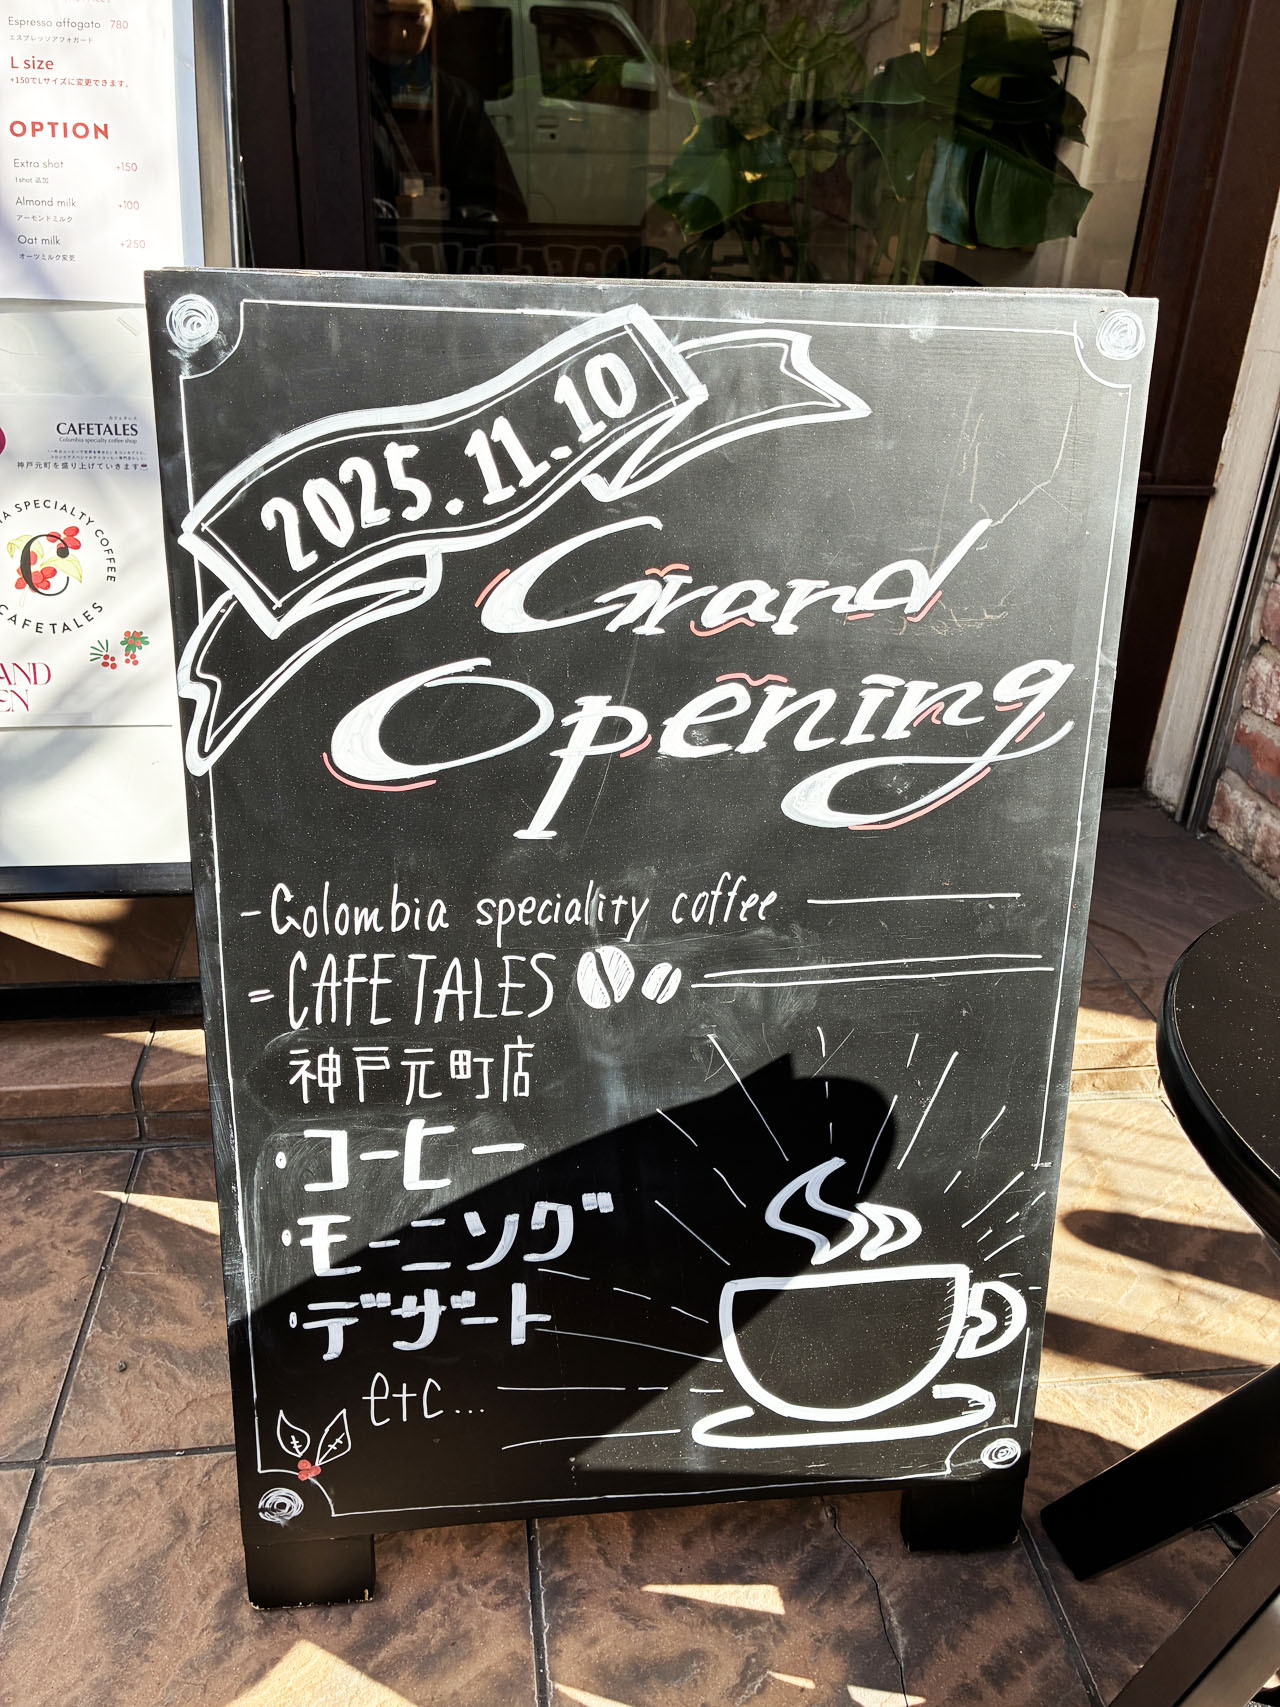 Espresso affogato 780
エスプレッソアフォガード
L size
+150でLサイズに変更できます。
OPTION
Extra shot +150
1 shot 追加
Almond milk +100
アーモンドミルク
Oat milk +250
オーツミルク変更
CAFETALES
Colombia specialty coffee shop
神戸元町を盛り上げていきます
SPECIALTY COFFEE
C
CAFETALES
2025.11.10
Grand
Opening
-Colombia speciality coffee
=CAFE TALES
神戸元町店
・コーヒー
・モーニング
・デザート
etc...